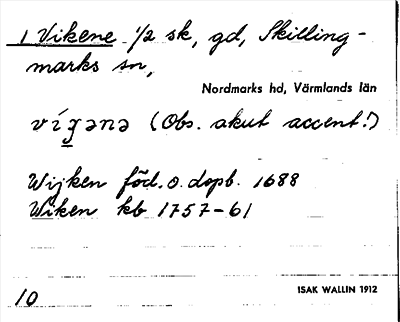 1 Vikene 1/2 sk, gd, Skilling-
marks sn,
Nordmarks hd, Värmlands län
vígənə (Obs. akut accent!)
Wijken föd. o. dopb. 1688
Wiken kb 1757-61
10
ISAK WALLIN 1912